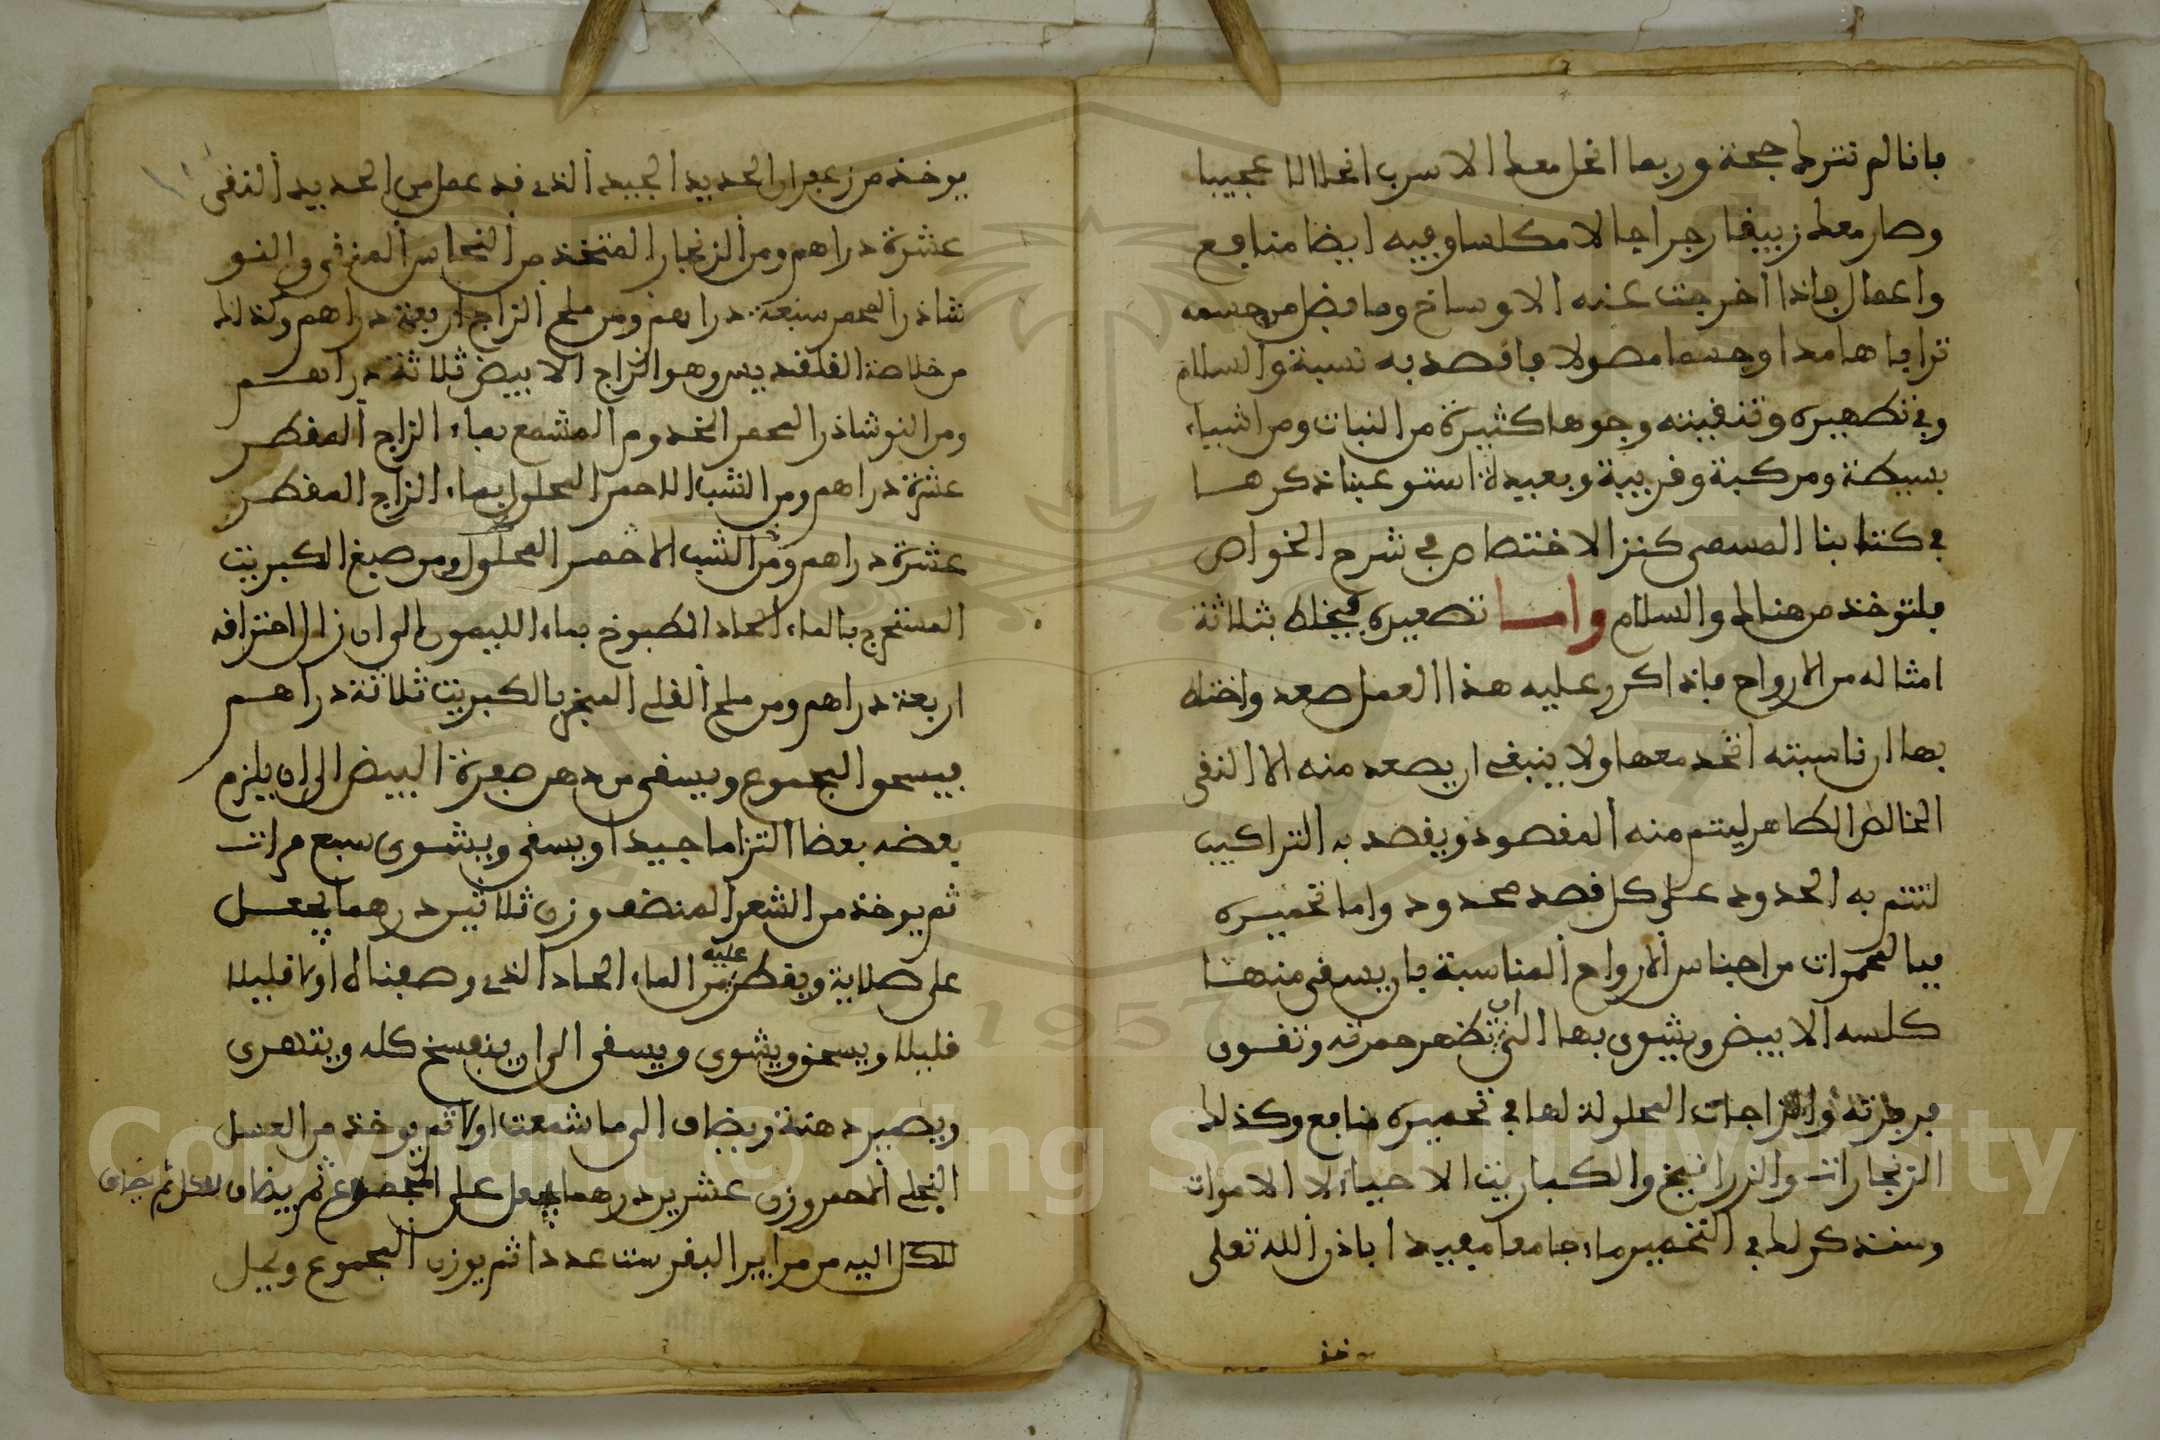 فانا لم نترك جحة وربما انحل معك الاسرب انحلالا عجيبا
وصار معك زيبقا رجراجا لا مكلسا وفيه ايضا منافع
واعمال فاذا اخرجت عنه الاوساخ وما فضل من جسمه
ترابا هامدا وجسما مصولا فاقصد به نسبة والسلام
وفي تطهيره وتنقيته وجوها كثيرة من النبات ومن اشياء
بسيطة ومركبة وقريبة وبعيدة استوعبنا ذكرها
في كتابنا المسمى كنز الاختصاص في شرح الخواص
فلتوخذ من هناك والسلام واما تصعيره فيخلط بثلاثة
امثاله من الارواح فاذا كرر عليه هذا العمل صعد واختلط
بها ان ناسبته اتحد معها ولا ينبغي ان يصعد منه الا النقي
الخالص الطاهر ليتم منه المقصود ويقصد به التراكيب
لتتم به الحدود على كل قصد محدود واما تحميره
فبالمحمرات من اجناس الارواح المناسبة بان يسقى منها
كلسه الابيض ويشوى بها الى ان تظهر حمرته وتقوى
فرفرته والزاجات المحلولة لها في تحميره منافع وكذلك
الزنجارات والزرانيخ والكباريت الاحياء لا الاموات
وسنذكر لك في التحمير ماء جامعا مفيدا باذن الله تعلى
يوخذ من زعفران الحديد الجيد الذي قد عمل من الحديد النقي
عشرة دراهم ومن الزنجار المتخذ من النحاس المنقى والنو
شاذر المحمر سبعة دراهم ومن ملح الزاج اربعة دراهم وكذلك
من خلاصة القلقنديس وهو الزاج الابيض ثلاثة دراهم
ومن النوشاذر المحمر المخدوم المشمع بماء الزاج المقطر
عشرة دراهم ومن الشب الاحمر المحلول بماء الزاج المقطر
عشرة دراهم ومن الشب الاحمر المحلول ومن صبغ الكبريت
المستخرج بالماء الحاد المطبوخ بماء الليمون الى ان زال احتراقه
اربعة دراهم ومن ملح القلي المبخر بالكبريت ثلاثة دراهم
فيسحق المجموع ويسقى من دهن صفرة البيض الى ان يلزم
بعضه بعضا التزاما جيدا ويسقى ويشوى سبع مرات
ثم يوخذ من الشعر المنظف وزن ثلاثين درهما يجعل
على صلاية ويقطر عليه من الماء الحاد الذي وصفناه اولا قليلا
قليلا ويسحق ويشوى ويسقى الى ان ينفسخ كله ويتهرى
ويصير دهنة ويضاف الى ما شمعت اولا ثم يوخذ من العسل
النحلي الاحمر وزن عشرين درهما يجعل على المجموع ثم يضاف
الكل اليه من مراير البقر ست عددا ثم يوزن المجموع ويحل
Copyright © King Saud University
1957